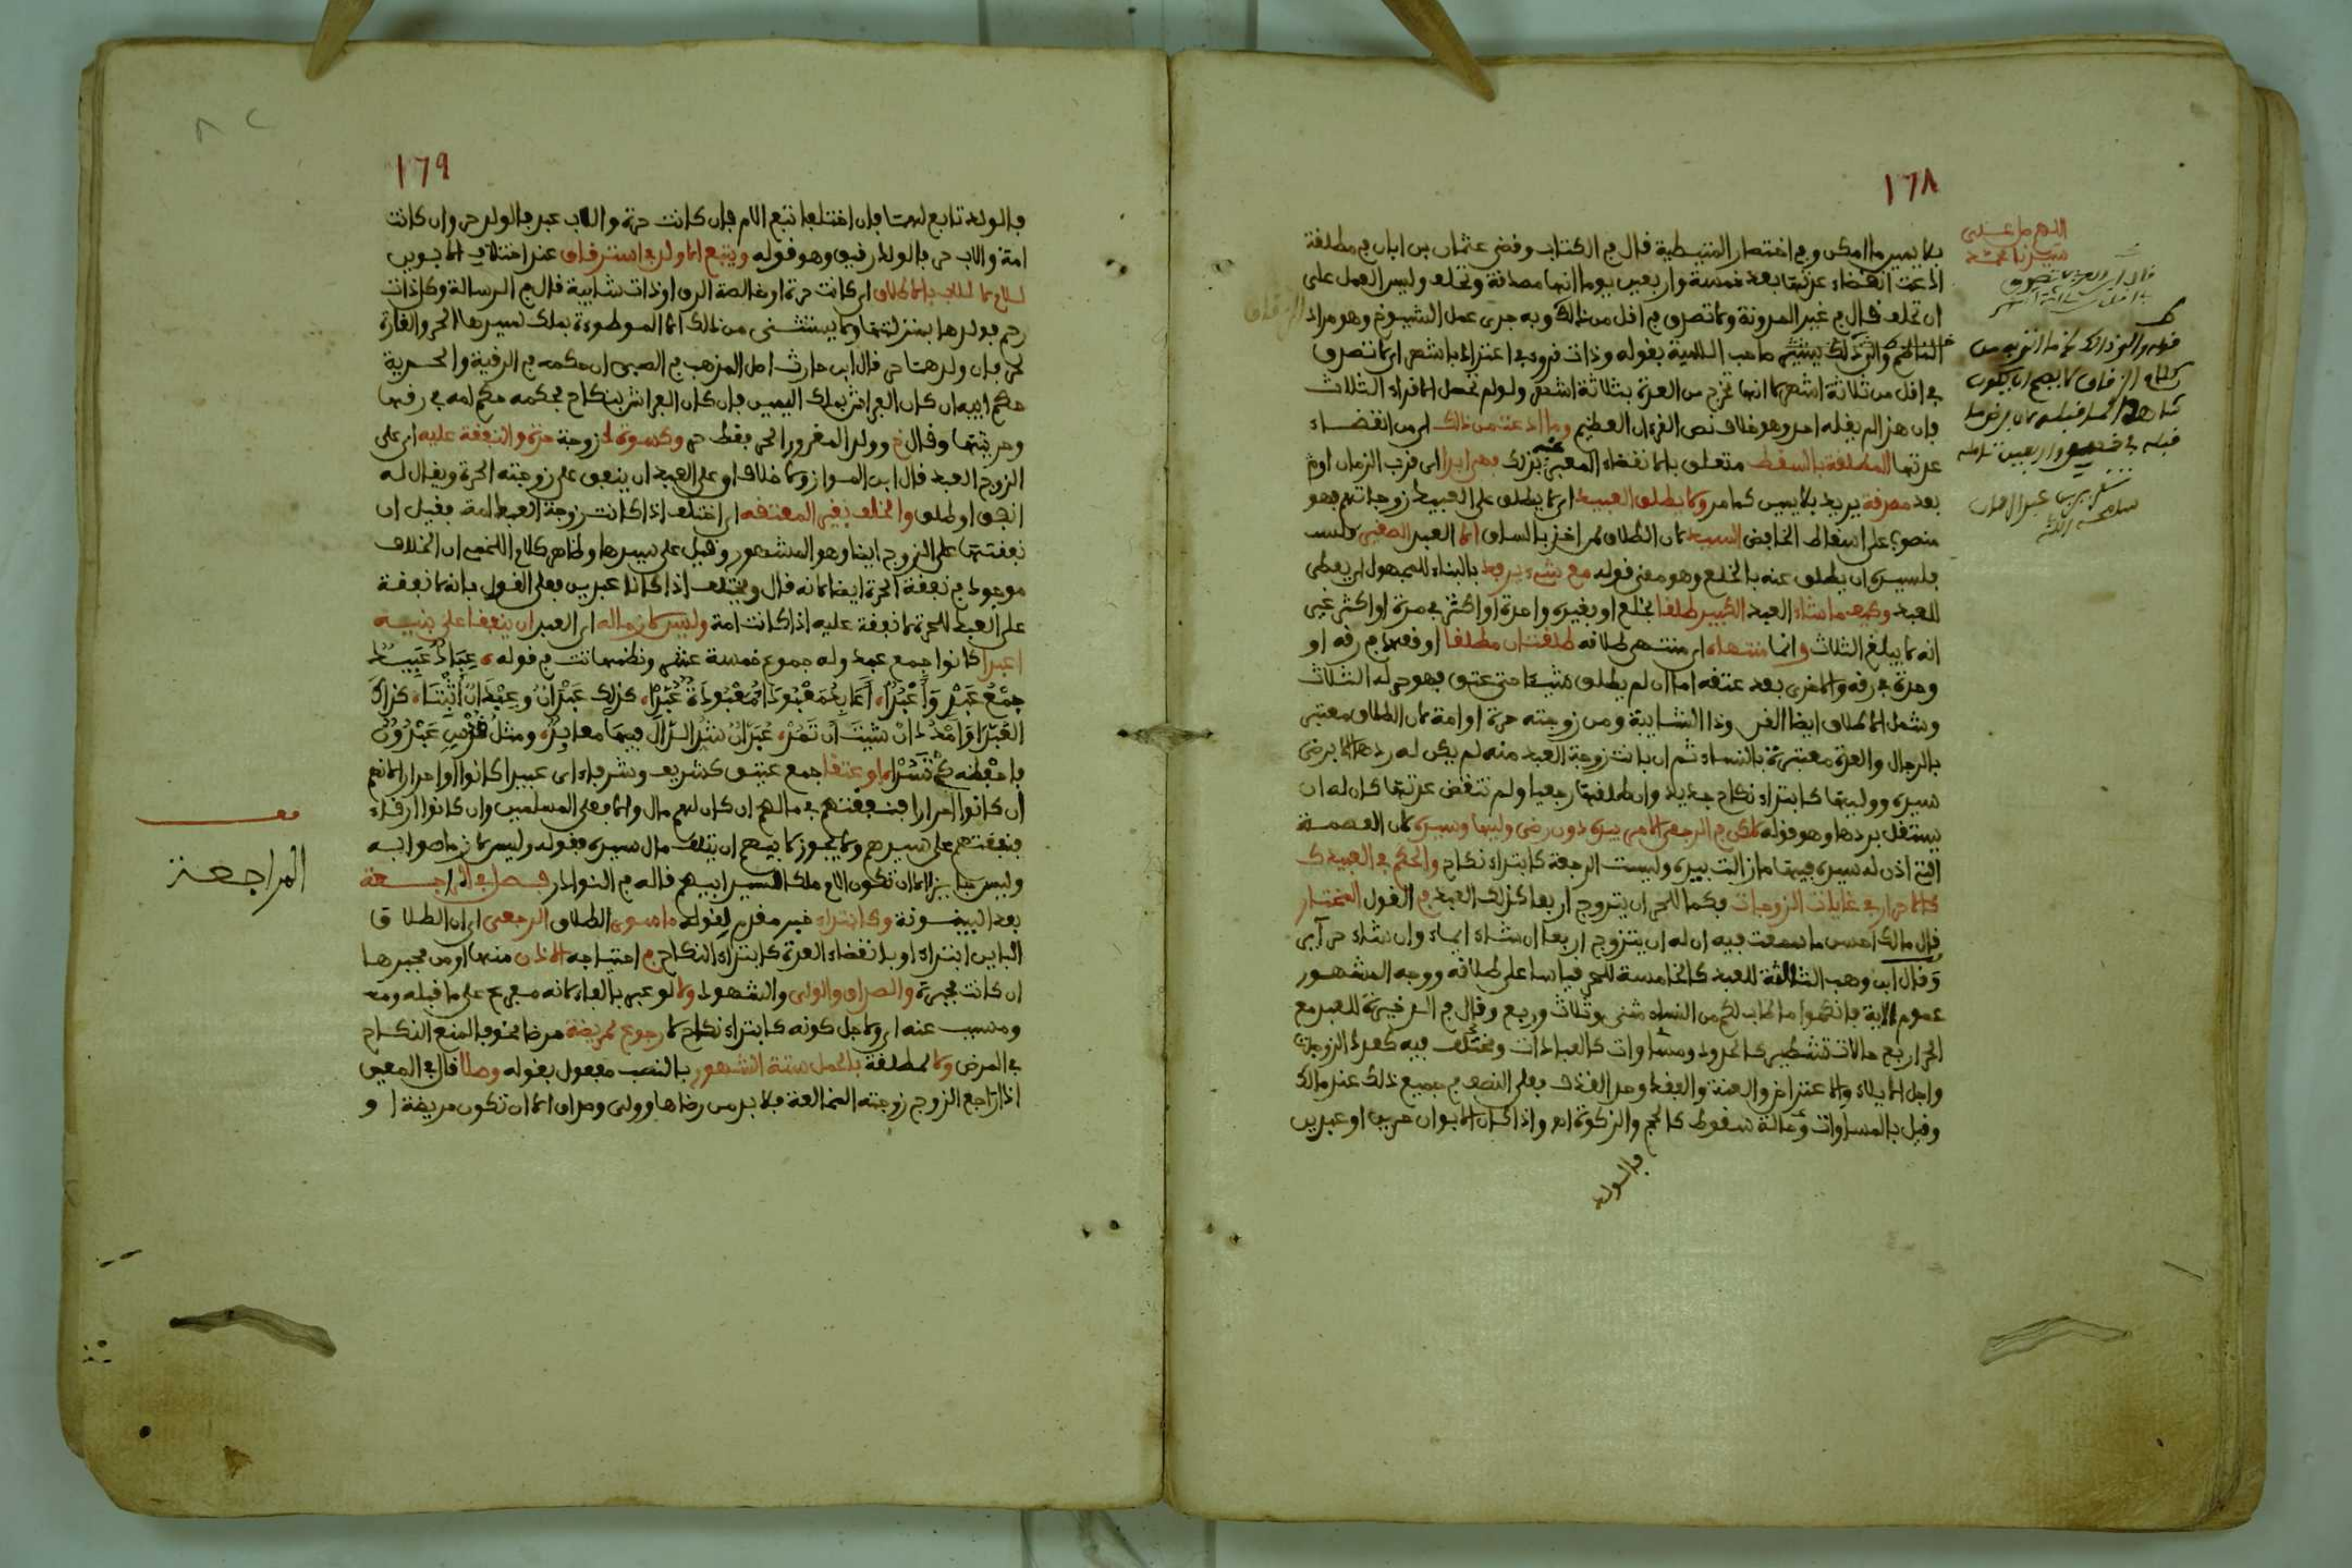 ١٦٨
بلا يمين ما امكن وفي اختصار المتيطية قال في الكتاب وقضى عثمان بن ابان في مطلقة
ادعت انقضاء عدتها بعد خمسة واربعين يوما انها مصدقة وتحلف وليس العمل على
ان تحلف قال في غير المدونة ولا تصدق في اقل من ذالك وبه جرى عمل الشيوخ وهو مراد
صاحب اللامية بقوله وذات قروء في اعتداد باشهر اي لا تصدق
في اقل من ثلاثة اشهر لا انها تخرج من العدة بثلاثة اشهر ولو لم تحصل الاقراء الثلاث
فان هذا لم يقله احد وهو خلاف نص القرءان العظيم وما ادعت من ذلك اي من انقضاء
عدتها المطلقة بالسقط متعلق بانقضاء المعبر عنه بذلك فهي ابدا اي قرب الزمان او
بعد مصدقة يريد بلا يمين كما مر ولا يطلق العبيد اي لا يطلق على العبيد زوجاتهم فهو
منصوب على اسقاط الخافض السيد لان الطلاق لمن اخذ بالساق الا العبد الصغير
فلسيده ان يطلق عنه بالخلع وهو معنى قوله مع شيء يرفد بالبناء للمجهول اي يعطى
للعبد وكيفما شاء العبد الكبير طلقا بخلع او بغيره واحدة او اكثر في مرة او اكثر غير
انه لا يبلغ الثلاث وانما منتهاه اي منتهى طلاقه طلقتان مطلقا اوقعهما في رقه او
وحدة في رقه والاخرى بعد عتقه اما ان لم يطلق شيئا حتى عتق فهو حر له الثلاث
وشمل الاطلاق ايضا القن وذا الشايبة ومن زوجته حرة او امة لان الطلاق معتبر
بالرجال والعدة معتبرة بالنساء ثم ان بانت زوجة العبد منه لم يكن له ردها الا برضى
سيده ووليها كابتداء نكاح جديد وان طلقها رجعيا ولم تنقض عدتها كان له ان
يستقل بردها وهو قوله لكن في الرجعي الامر بيده دون رضى وليها وسيده لان العصمة
التي اذن له سيده فيها ما زالت بيده وليست الرجعة كابتداء نكاح والحكم في العبيد ك
كالاحرار في غايات الزوجات فكما للحر ان يتزوج اربعا كذلك العبد في القول المختار
قال مالك احسن ما سمعت فيه ان له ان يتزوج اربعا ان شاء اماء وان شاء حرائر
وقال ابن وهب الثالثة للعبد كالخامسة للحر قياسا على طلاقه ووجه المشهور
عموم الاية فانكحوا ما طاب لكم من النساء مثنى وثلاث وربع وقال في الذخيرة للعبد مع
الحر اربع حالات تشطير كالحدود ومساوات كالعبادات ومختلف فيه كعدد الزوجات
واجل الايلاء والاعتراض والعنة والفقد وحد القذف فعلى النصف في جميع ذلك عند مالك
وقيل بالمساوات وحالة سقوط كالحج والزكوة اهـ واذا كان الابوان حرين او عبدين
فالولد
اللهم صل على
سيدنا محمد
١٦٩
فالولد تابع لهما فان اختلفا اتبع الام فان كانت حرة والاب عبد فالولد حر وان كانت
امة والاب حر فالولد رقيق وهو قوله ويتبع الاولاد في استرقاق عند اختلاف الابوين
للام لا للاب بالاطلاق اي كانت حرة او خالصة الرق او ذات شايبة قال في الرسالة وكل ذات
رحم فولدها بمنزلتها ولا يستثنى من ذلك الا الموطوءة بملك لسيدها الحر والغارة
لحر فان ولدهما حر قال ابن حارث اصل المذهب في الصبي ان حكمه في الرقية والحرية
حكم ابيه ان كان الفراش بملك اليمين فان كان الفراش بنكاح فحكمه حكم امه في رقها
وحريتها وقال خ وولد المغرور الحر فقط حر وكسوة لزوجة حرة والنفقة عليه اي على
الزوج العبد قال ابن المواز ولا خلاف ان على العبد ان ينفق على زوجته الحرة ويقال له
انفق او طلق والخلف بغير المعتقه اي اختلف اذا كانت زوجة العبد امة فقيل ان
نفقتها على الزوج ايضا وهو المشهور وقيل على سيدها وظاهر كلام اللخمي ان الخلاف
موجود في نفقة الحرة ايضا لانه قال ويختلف اذا كانا عبدين فعلى القول بانه لا نفقة
على العبد للحرة لا نفقة عليه اذا كانت امة وليس لازما له اي العبد ان ينفقا على بنيه
اعبدا كانوا جمع عبد وله جموع خمسة عشر ونظمها تت في قوله عباد عبيد
جمع عبد واعبد اعابد معبودا معبودة عبد كذلك عبدان وعبدان اثبتا كذاك
العبدا وامدد ان شيت ان تمد
ان كانوا احرارا فنفقتهم في مالهم ان كان لهم مال والا فعلى المسلمين وان كانوا ارقاء
فنفقتهم على سيدهم ولا يجوز لابيهم ان يتلف مال سيده فقوله وليس لازما صوابه
وليس جايزا الا ان تكون الام ملكا لسيد ابيهم قاله في النوادر فصل في المراجعة
بعد البينونة وكابتداء خبر مقدم لقوله ما سوى الطلاق الرجعي اي ان الطلاق
الباين ابتداء او بانقضاء العدة كابتداء النكاح في احتياجه الاذن منها او من مجبرها
ان كانت مجبرة والصداق والولي والشهود ولا لو عبر بالفاء لانه مفرع على ما قبله
ومسبب عنه اي ولاجل كونه كابتداء نكاح لا رجوع لمريضة مرضا مخوفا لمنع النكاح
في المرض ولا لمطلقة بالحمل ستة الشهور بالنصب مفعول بقوله وصلا قال في المعين
اذا راجع الزوج زوجته المخالعة فلا بد من رضاها وولي وصداق الا ان تكون مريضة او
المراجعة